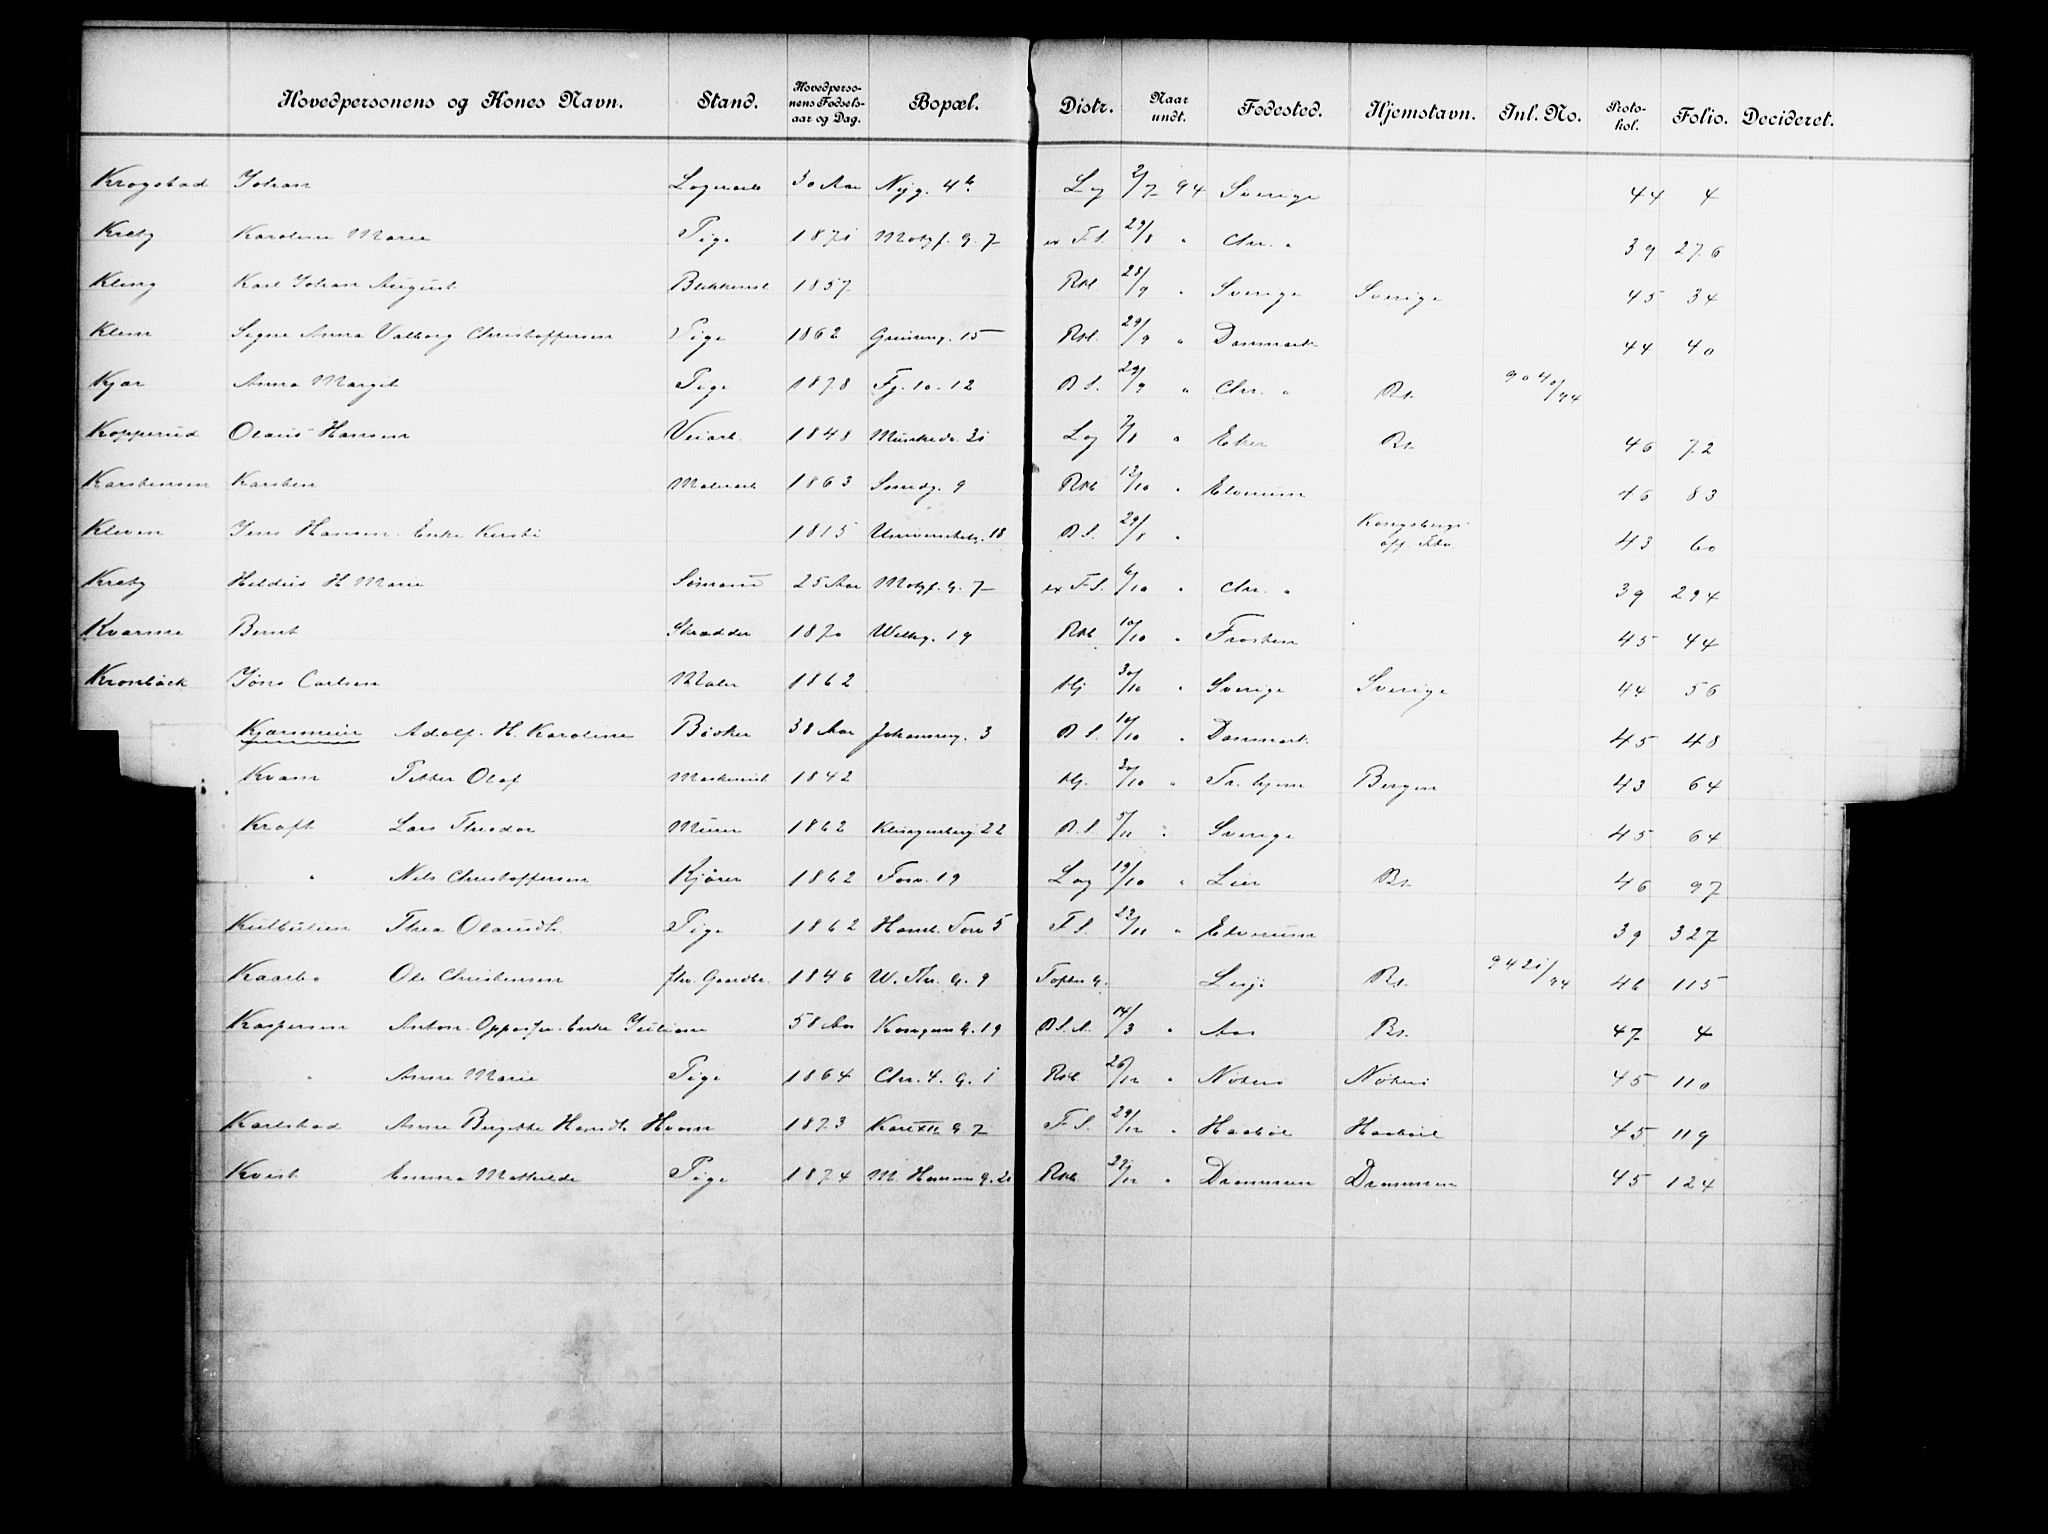 Hovedpersonens og Kones Navn. Stand. Hovedperso-nens Fødsels-aar og Dag. Bopæl. Distr. Naar undt. Fødested. Hjemstavn. Inl. No. Proto-kol. Folio. Decideret.
Krogstad Johan 30 Aar Nyg. 4b Lag 2/7 94 Sverige 44 4
Karoline Marie Pige 1871 Motzf. G. 7 ex F.S. 29/8 " Chr. a 39 276
Kling Karl Johan August 1857 28/9 " Sverige Sverige 45 34
Klem Signe Anna Valborg Christoffersen Pige 1862 Grünerg. 15 29/9 " Danmark 44 40
Kjær Anna Margit Pige 1878 Fj. 10-12 29/9 " Chr. a 9040/94
Kopperud Olaus Hansen Veiarb. 1848 21 Lag 7/8 " Eker 46 72
Karstensen Karsten Malerarb 1863 9 12/10 " Elverum 46 83
Kleven Jens Hansen Enke Kersti 1815 Universitetsg. 18 29/8 " Kongsberg 43 60
H. Marie Sømand 25 Aar Motzf. G. 7 ex F.S. 6/10 " Chr. a 39 294
Kvarme Bernt Skrædder 1870 Welhg. 19 10/10 " Frosten 45 44
Kronbäck Jöns Carlsen Maler 1862 Hj 30/10 " Sverige Sverige 44 56
Kjarmeier Adolf. H. Karoline Bødker 38 Aar Johannesg. 3 10/10 " Danmark 45 48
Kvam Petter Olaf Maskinist 1842 Hj. 30/10 " Tr.hjem Bergen 43 64
Kraft Lars Theodor Murer 1862 Klingenberg 22 5/11 " Sverige 45 64
" Nils Christoffersen Kjører 1862 Torv. 19 Lag 19/10 " Lier 46 97
Thea Olausdt. Pige 1862 Haml. Torv 5 F.S. 22/11 " Elverum 39 327
Kaarbo Ole Christensen fhv. Gaardbr. 1846 W. Thr. G. 9 9421/94 46 115
Kaspersen Anton. Enke Juliane 58 Aar Kongens G. 19 14/3 " Aas 47 4
" Anne Marie Pige 1864 Chr. 4. G. 1 26/12 " 45 110
Karlstad Anne Birgitte Hansdt. 1873 Karl XII G. 7 F.S. 29/12 " 45 119
Kvist Emma Mathilde Pige 1874 M. Hansens G. 21/12 " Drammen Drammen 45 124